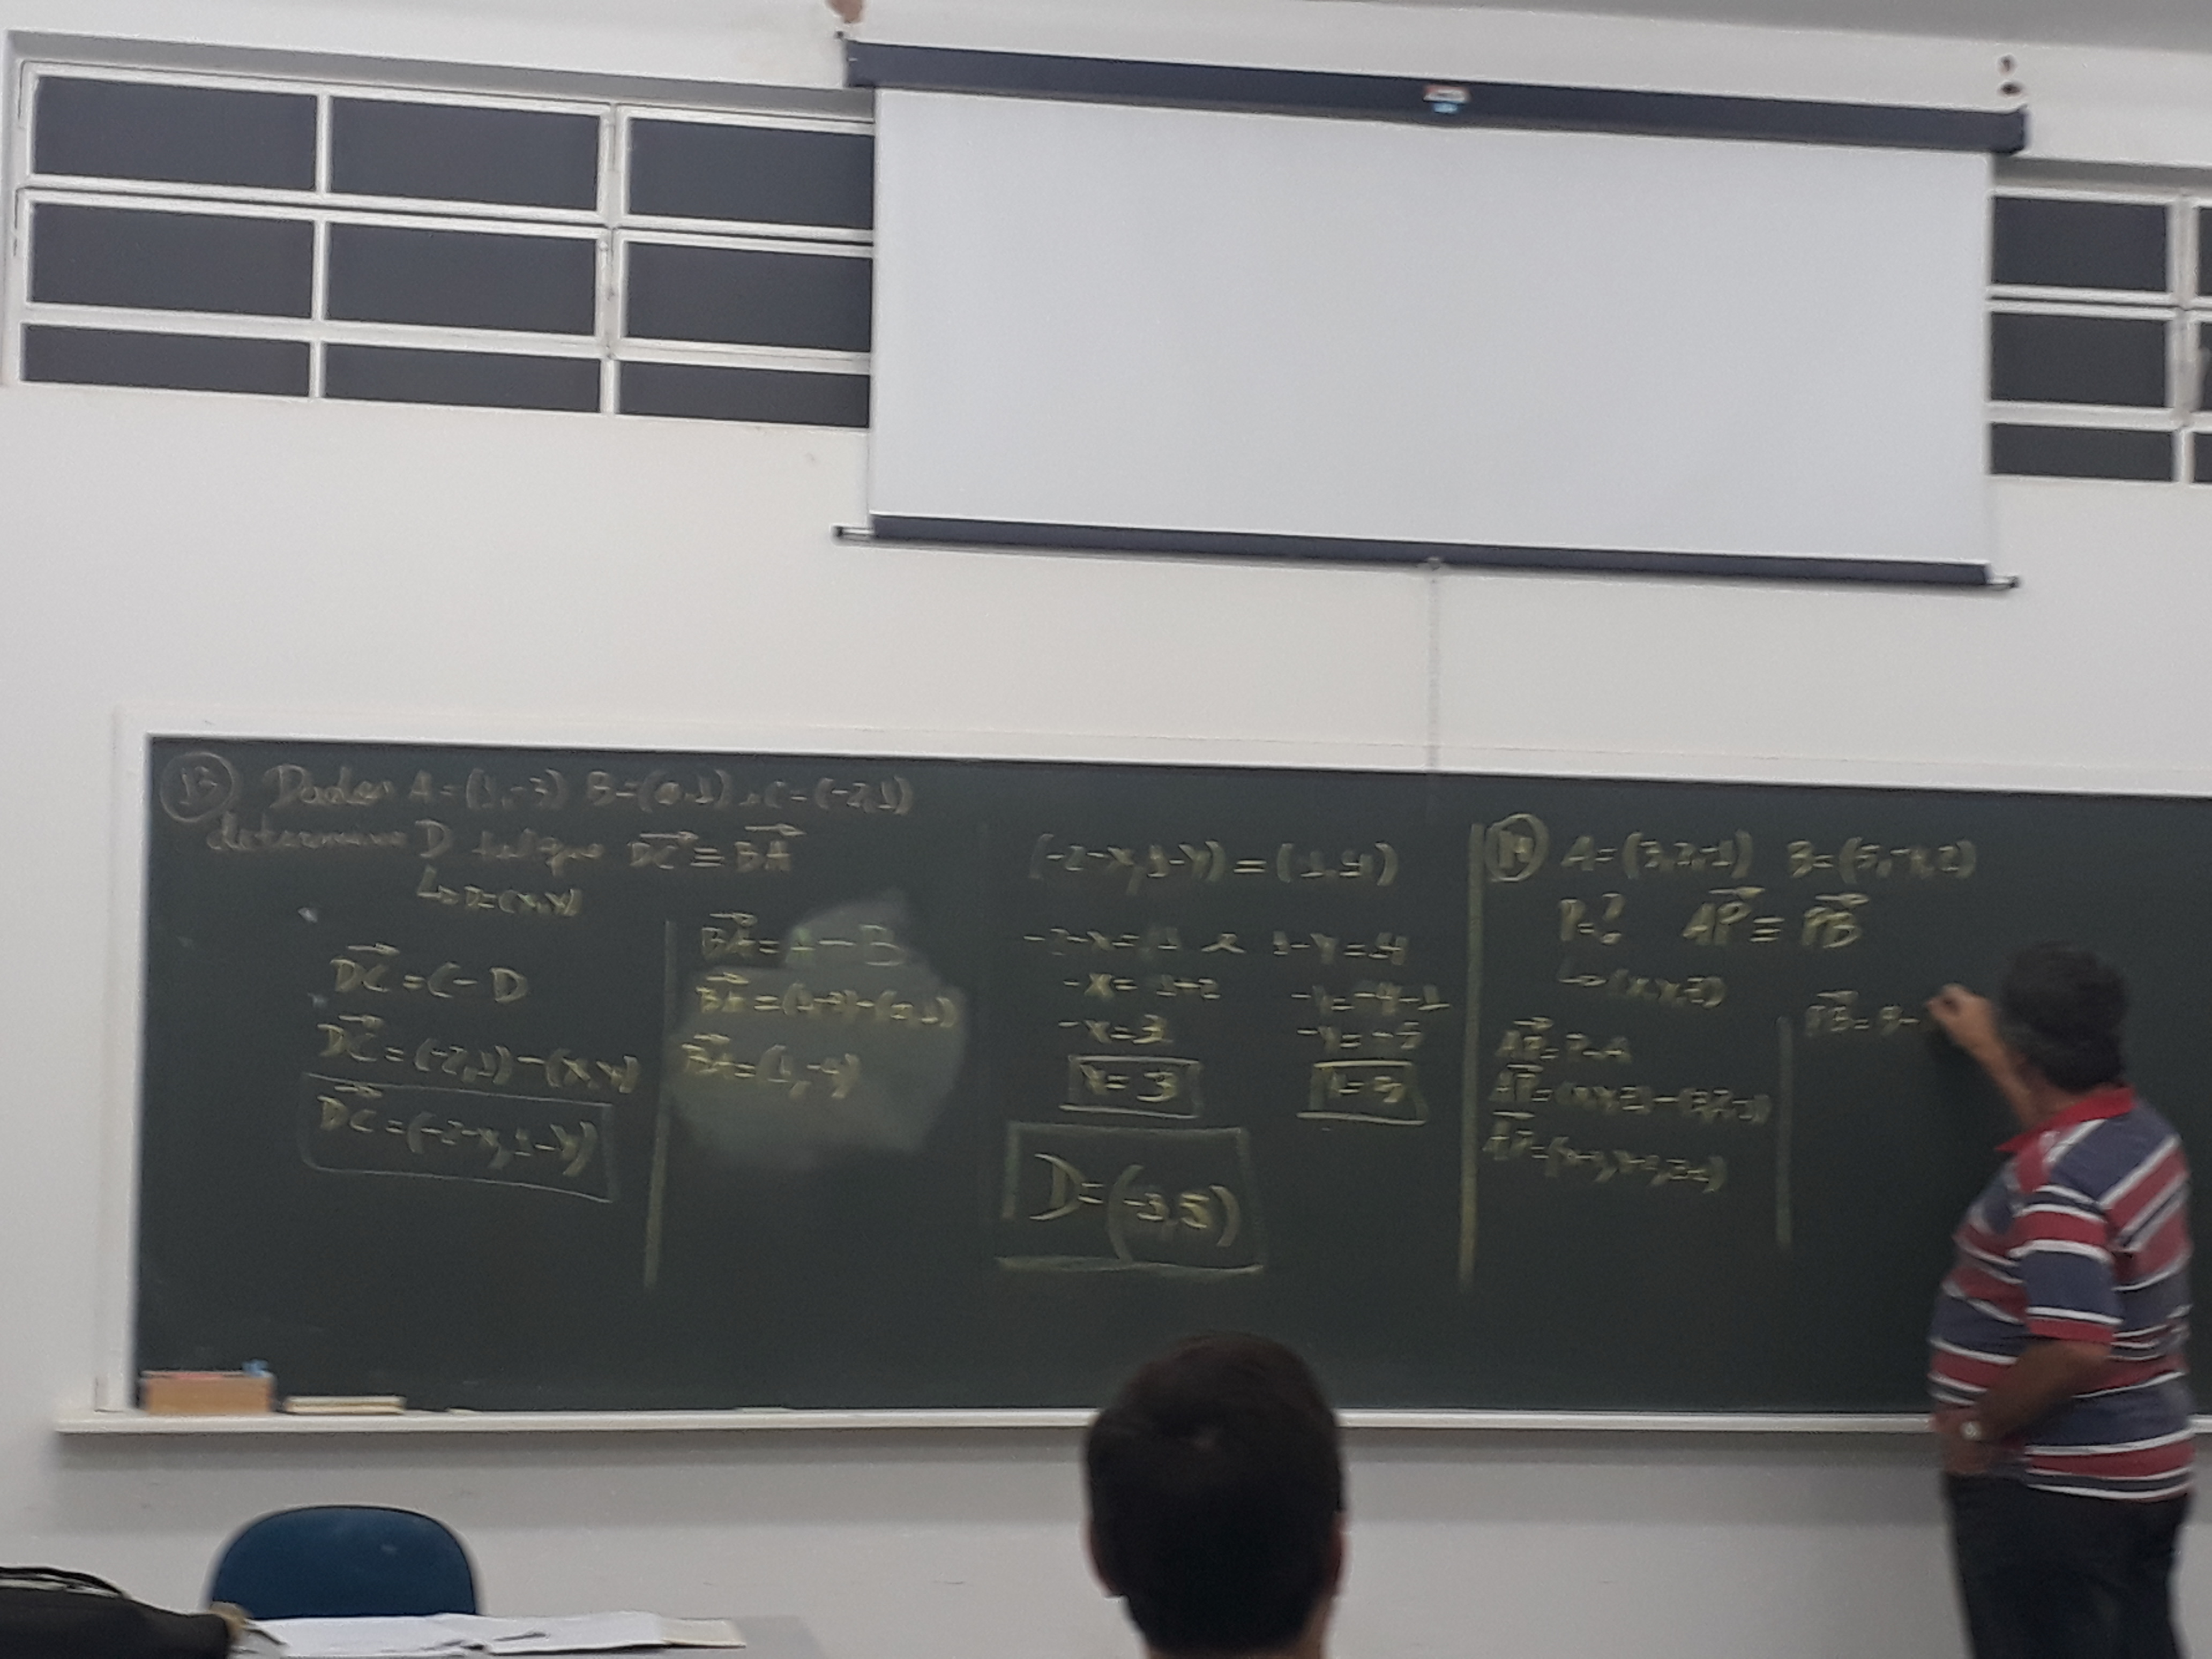 13 Dados A=(1,-3) B=(0,1) e C=(-2,1)
determine D tal que DC ≡ BA
↳ D=(x,y)
DC = C - D
DC = (-2,1)-(x,y)
DC = (-2-x,1-y)
BA = A - B
BA = (1,-3)-(0,1)
BA = (1,-4)
(-2-x,1-y) = (1,-4)
-2-x=1 e 1-y=-4
-x= 1+2 -y=-4-1
-x=3 -y=-5
x=-3 y=5
D=(-3,5)
14 A=(3,2,-1) B=(5,-4,2)
P=? AP ≡ PB
↳ (x,y,z)
AP = P-A
AP = (x,y,z)-(3,2,-1)
PB = B-